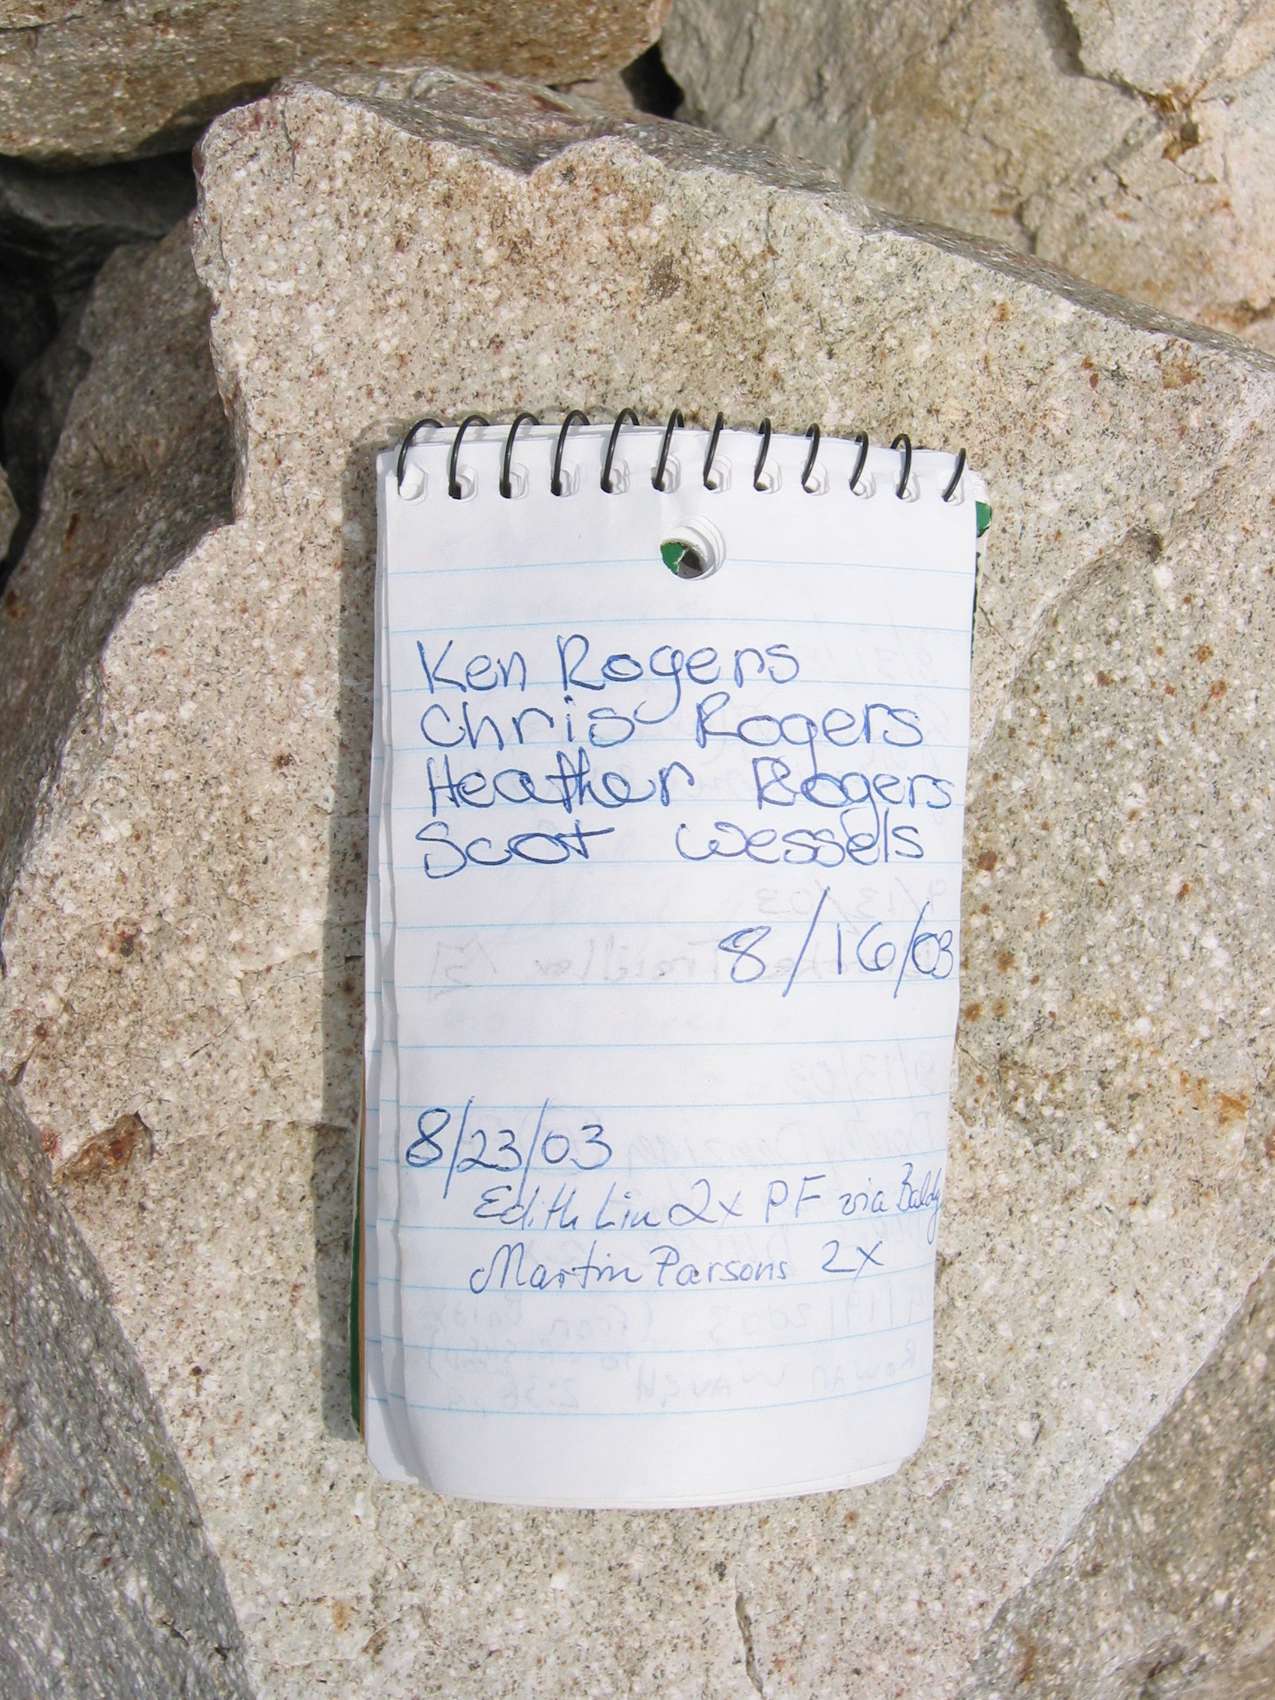 Ken Rogers
Chris Rogers
Heather Rogers
Scot Wessels
8/16/03
8/23/03
Edith Liu 2x PF via Baldy
Martin Parsons 2x